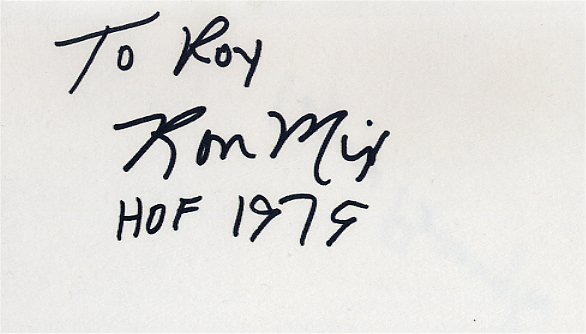 To Roy
Ron Mix
HOF 1979